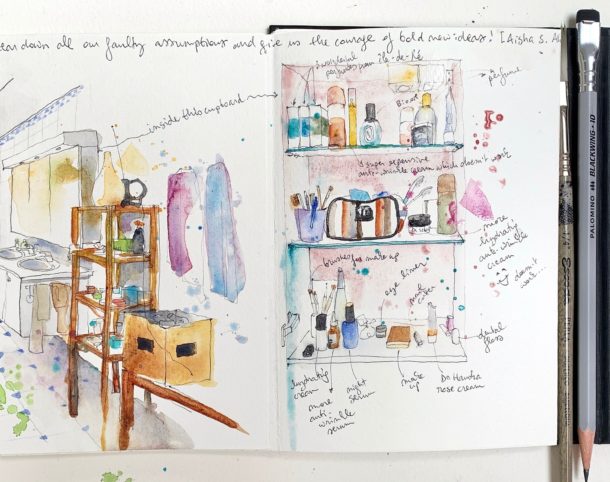 down all our faulty assumptions and give us the courage of bold new ideas! [Aisha S.
inside this cupboard
perfumes from île-de-Ré
perfume
super expensive
anti-wrinkle cream which doesn't work
more
hydrating
anti-wrinkle
cream
doesn't
work...
brushes for make up
eye liner
dental
floss
hydrating
cream
more
anti-
wrinkle
serum
night
serum
make
up
Dr Hauschka
rose cream
PALOMINO BLACKWING